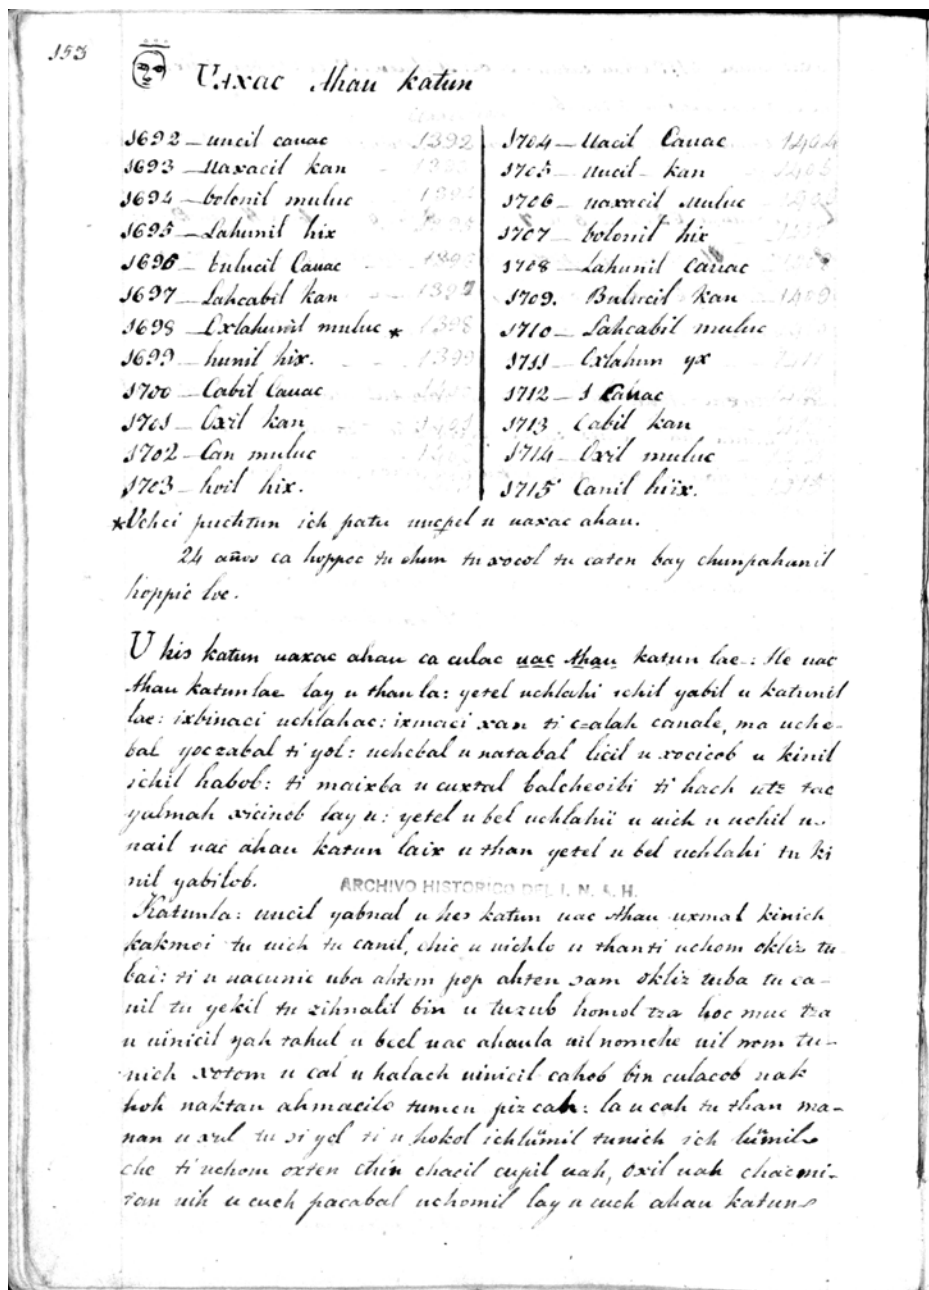 153
Uaxac Ahau katun
1692 — uucil cauac
1693 — Uaxacil kan
1694 — bolonil muluc
1695 — Lahunil hix
1696 — buluciI Cauac
1697 — Lahcabil kan
1698 — Oxlahunil muluc *
1699 — hunil hix.
1700 — Cabil Cauac
1701 — Oxil kan
1702 — Can muluc
1703 — hoil hix.
1704 — Uacil Cauac
1705 — uucil - kan
1706 — uaxacil Muluc
1707 — bolonil hix
1708 — Lahunil cauac
1709. Bulucil kan
1710 — Lahcabil muluc
1711 — Oxlahun yx
1712 — 1 Cauac
1713 Cabil kan
1714 — Oxil muluc
1715 Canil hiix.
*Uchci puchtun ich patu uucpel u uaxac ahau.
24 años ca hoppoc tu chun tu xocol tu caten bay chunpahanil
hoppic loe.
U his katun uaxac ahau ca culac uac Ahau katun lae: He uac
Ahau katunlae lay u thanla: yetel uchlahi ichil yabil u katunil
lae: ixbinaci uchlahac: ixmaci xan ti czalah canale, ma uche-
bal yoczabal ti yol: uchebal u natabal licil u xocicob u kinil
ichil habob: ti maixba u cuxtal balcheoibi ti hach utz tac
yalmah xicinob lay u: yetel u bel uchlahii u uich u uchil u-
nail uac ahau katun laix u than yetel u bel uchlahi tu ki
nil yabilob.
ARCHIVO HISTORICO DEL I. N. A. H.
Katunla: uucil yabnal u hes katun uac Ahau uxmal kinich
kakmoi tu uich tu canil, chic u uichlo u thanti uchom okliz tu
bai: ti u uacunic uba ahtem pop ahten sam okliz tuba tu ca-
nil tu yekil tu zihnalil bin u tuzub homol tza hoc muc tza
u uinicil yah tahul u beel uac ahaula uil nomche uil nom tu-
nich xotom u cal u halach uinicil cahob bin culacob nak
hoh naktan ahmacilo tumen pizcah: la u cah tu than ma-
nan u xul tu si yol ti u hokol ichlümil tunich ich lümil
che ti uchom oxten chin chacil cupil uah, oxil uah chacmi-
tan uih u cuch pacabal uchomil lay u cuch ahau katun